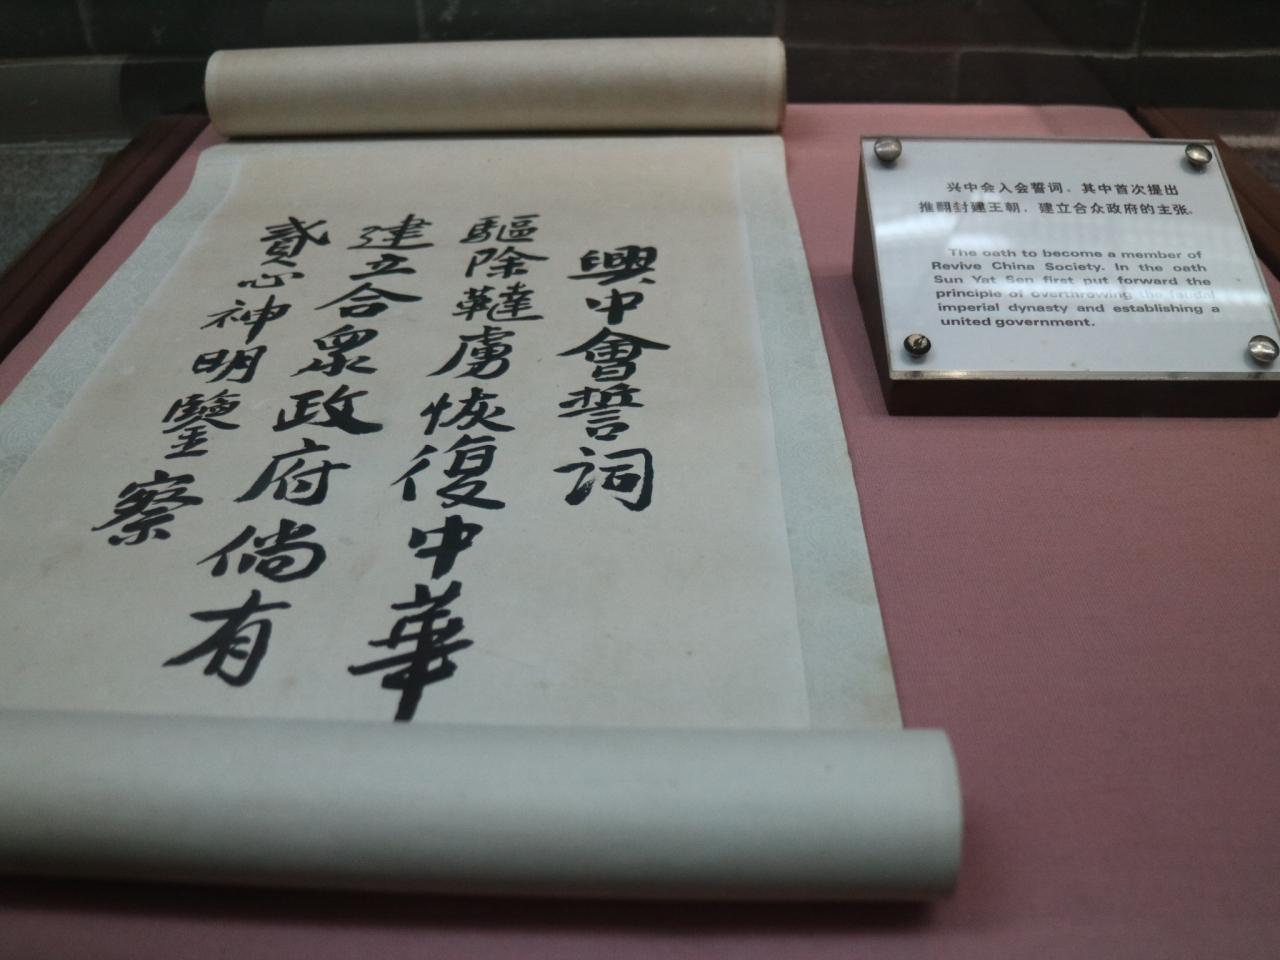 興中會誓詞
驅除韃虜恢復中華
建立合衆政府倘有
貳心神明鑒察
兴中会入会誓词，其中首次提出
推翻封建王朝，建立合众政府的主张。
The oath to become a member of
Revive China Society. In the oath
Sun Yat Sen first put forward the
principle of overthrowing the faudal
imperial dynasty and establishing a
united government.